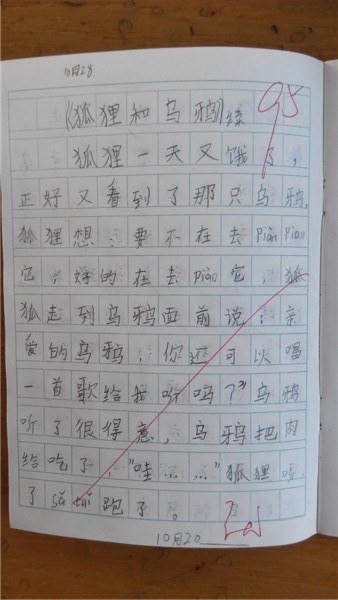 10月28
《狐狸和乌鸦》续
95
狐狸一天又饿了,
正好又看到了那只乌鸦,
狐狸想:要不在去piàn piàn
它,好的在去piàn它,狐
狐走到乌鸦面前说:亲
爱的乌鸦,你还可以唱
一首歌给我听吗?"乌鸦
听了很得意,乌鸦把肉
给吃了,"哇……"狐狸
了sā tuǐ跑了。
10月20